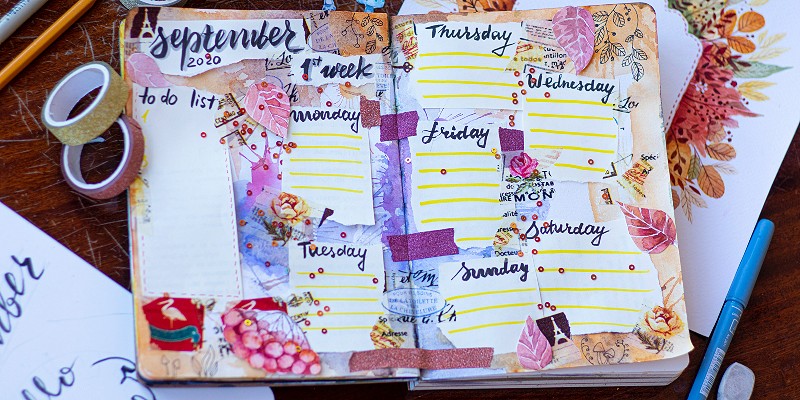 september
2020
1st week
to do list
monday
Tuesday
Thursday
Wednesday
friday
Saturday
Sunday
MON
Docteur
Adresse
llo